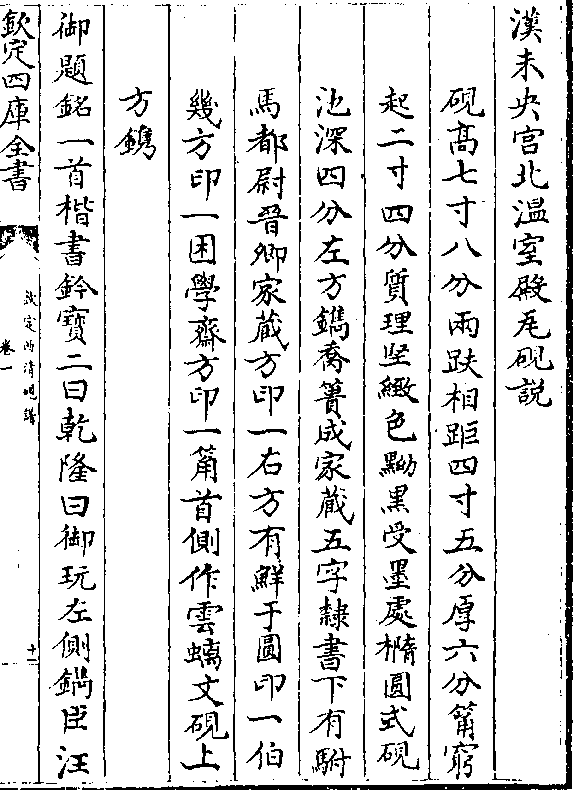 漢未央宫北溫室殿瓦硯説
硯髙七寸八分兩趺相距四寸五分厚六分筩窮
起二寸四分質理堅緻色黝黒受墨處橢圓式硯
池深四分左方鐫喬簣成家藏五字隸書下有駙
馬都尉晉卿家藏方印一右方有鮮于圓印一伯
幾方印一困學齋方印一筩首側作雲螭文硯上
方鐫
御題銘一首楷書鈐寳二曰乾隆曰御玩左側鐫臣汪
欽定四庫全書
欽定西清硯譜
卷一
十二